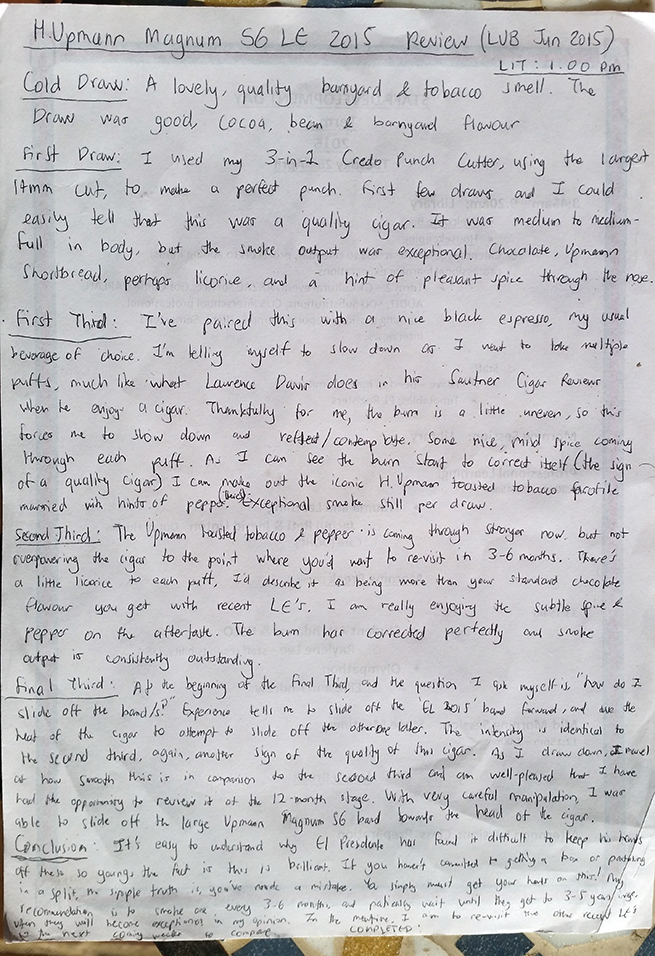 H. Upmann Magnum 56 LE 2015 Review (LUB Jun 2015)
LIT: 1.00 pm
Cold Draw: A lovely, quality barnyard & tobacco smell. The
Draw was good, cocoa, bean & barnyard flavour
First Draw: I used my 3-in-1 Credo Punch Cutter, using the largest
14mm cut, to make a perfect punch. First few draws and I could
easily tell that this was a quality cigar. It was medium to medium-
full in body, but the smoke output was exceptional. Chocolate, Upmann
Shortbread, perhaps licorice, and a hint of pleasant spice through the nose.
First Third: I've paired this with a nice black espresso, my usual
beverage of choice. I'm telling myself to slow down as I want to take multiple
puffs, much like what Laurence Davis does in his Sautner Cigar Reviews
when he enjoys a cigar. Thankfully for me, the burn is a little uneven, so this
forces me to slow down and reflect/contemplate. Some nice, mild spice coming
through each puff. As I can see the burn start to correct itself (the sign
of a quality cigar) I can make out the iconic H. Upmann toasted tobacco profile
married with hints of pepper. Exceptional smoke still per draw.
Second Third: The Upmann toasted tobacco & pepper is coming through stronger now, but not
overpowering the cigar to the point where you'd want to re-visit in 3-6 months. There's
a little licorice to each puff, I'd describe it as being more than your standard chocolate
flavour you get with recent LE's. I am really enjoying the subtle spice &
pepper on the aftertaste. The burn has corrected perfectly and smoke
output is consistently outstanding.
Final Third: At the beginning of the Final Third, and the question I ask myself is, "how do I
slide off the band/s?" Experience tells me to slide off the 'EL 2015' band forward, and use the
heat of the cigar to attempt to slide off the other one later. The intensity is identical to
the second third, again, another sign of the quality of this cigar. As I draw down, I marvel
at how smooth this is in comparison to the second third and am well-pleased that I have
had the opportunity to review it at the 12-month stage. With very careful manipulation, I was
able to slide off the large Upmann Magnum 56 band towards the head of the cigar.
Conclusion: It's easy to understand why El Presidente has found it difficult to keep his hands
off these so young, the fact is this is brilliant. If you haven't committed to getting a box or partaking
in a split, the simple truth is, you've made a mistake. You simply must get your hands on this! My
recommendation is to smoke one every 3-6 months, and patiently wait until they get to 3-5 years age,
when they will become exceptional in my opinion. In the meantime, I aim to re-visit the other recent LE's
in the next coming weeks to compare. COMPLETED: